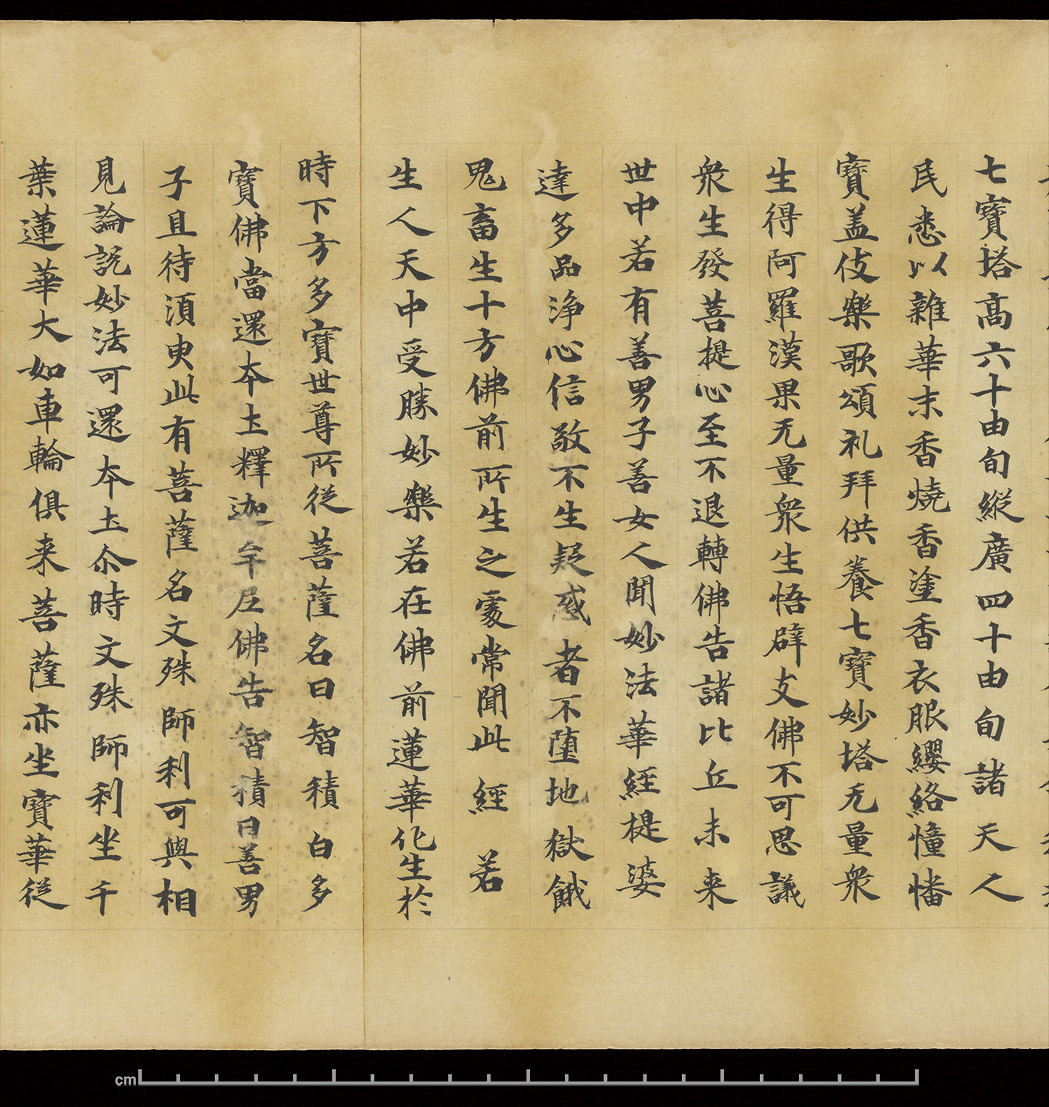 七寶塔高六十由旬縱廣四十由旬諸天人
民悉以雜華末香燒香塗香衣服纓絡憧幡
寶盖伎樂歌頌礼拜供養七寶妙塔无量衆
生得阿羅漢果无量衆生悟辟支佛不可思議
衆生發菩提心至不退轉佛告諸比丘未来
世中若有善男子善女人聞妙法華經提婆
達多品淨心信敬不生疑惑者不墮地獄餓
鬼畜生十方佛前所生之處常聞此經若
生人天中受勝妙樂若在佛前蓮華化生於
時下方多寶世尊所從菩薩名曰智積白多
寶佛當還本土釋迦牟尼佛告智積曰善男
子且待須臾此有菩薩名文殊師利可與相
見論説妙法可還本土尒時文殊師利坐千
葉蓮華大如車輪俱来菩薩亦坐寶華從